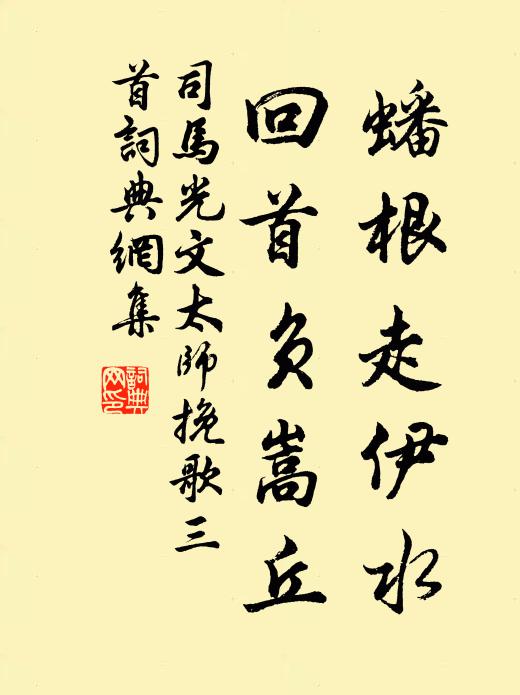 蟠根走伊水
回首負嵩丘
司馬光文太師挽歌三
首詞典網集
詞典網印